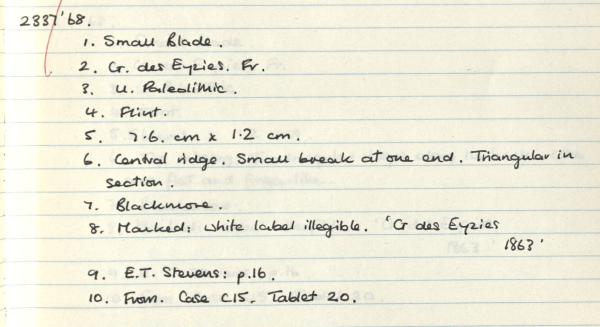 2337'68.
1. Small Blade.
2. Gr. des Eyzies. Fr.
3. U. Paleolithic.
4. Flint.
5. 7.6. cm x 1.2 cm.
6. Central ridge. Small break at one end. Triangular in
section.
7. Blackmore.
8. Marked: white label illegible. 'Gr des Eyzies
1863'
9. E.T. Stevens: p.16.
10. From. Case C15. Tablet 20.